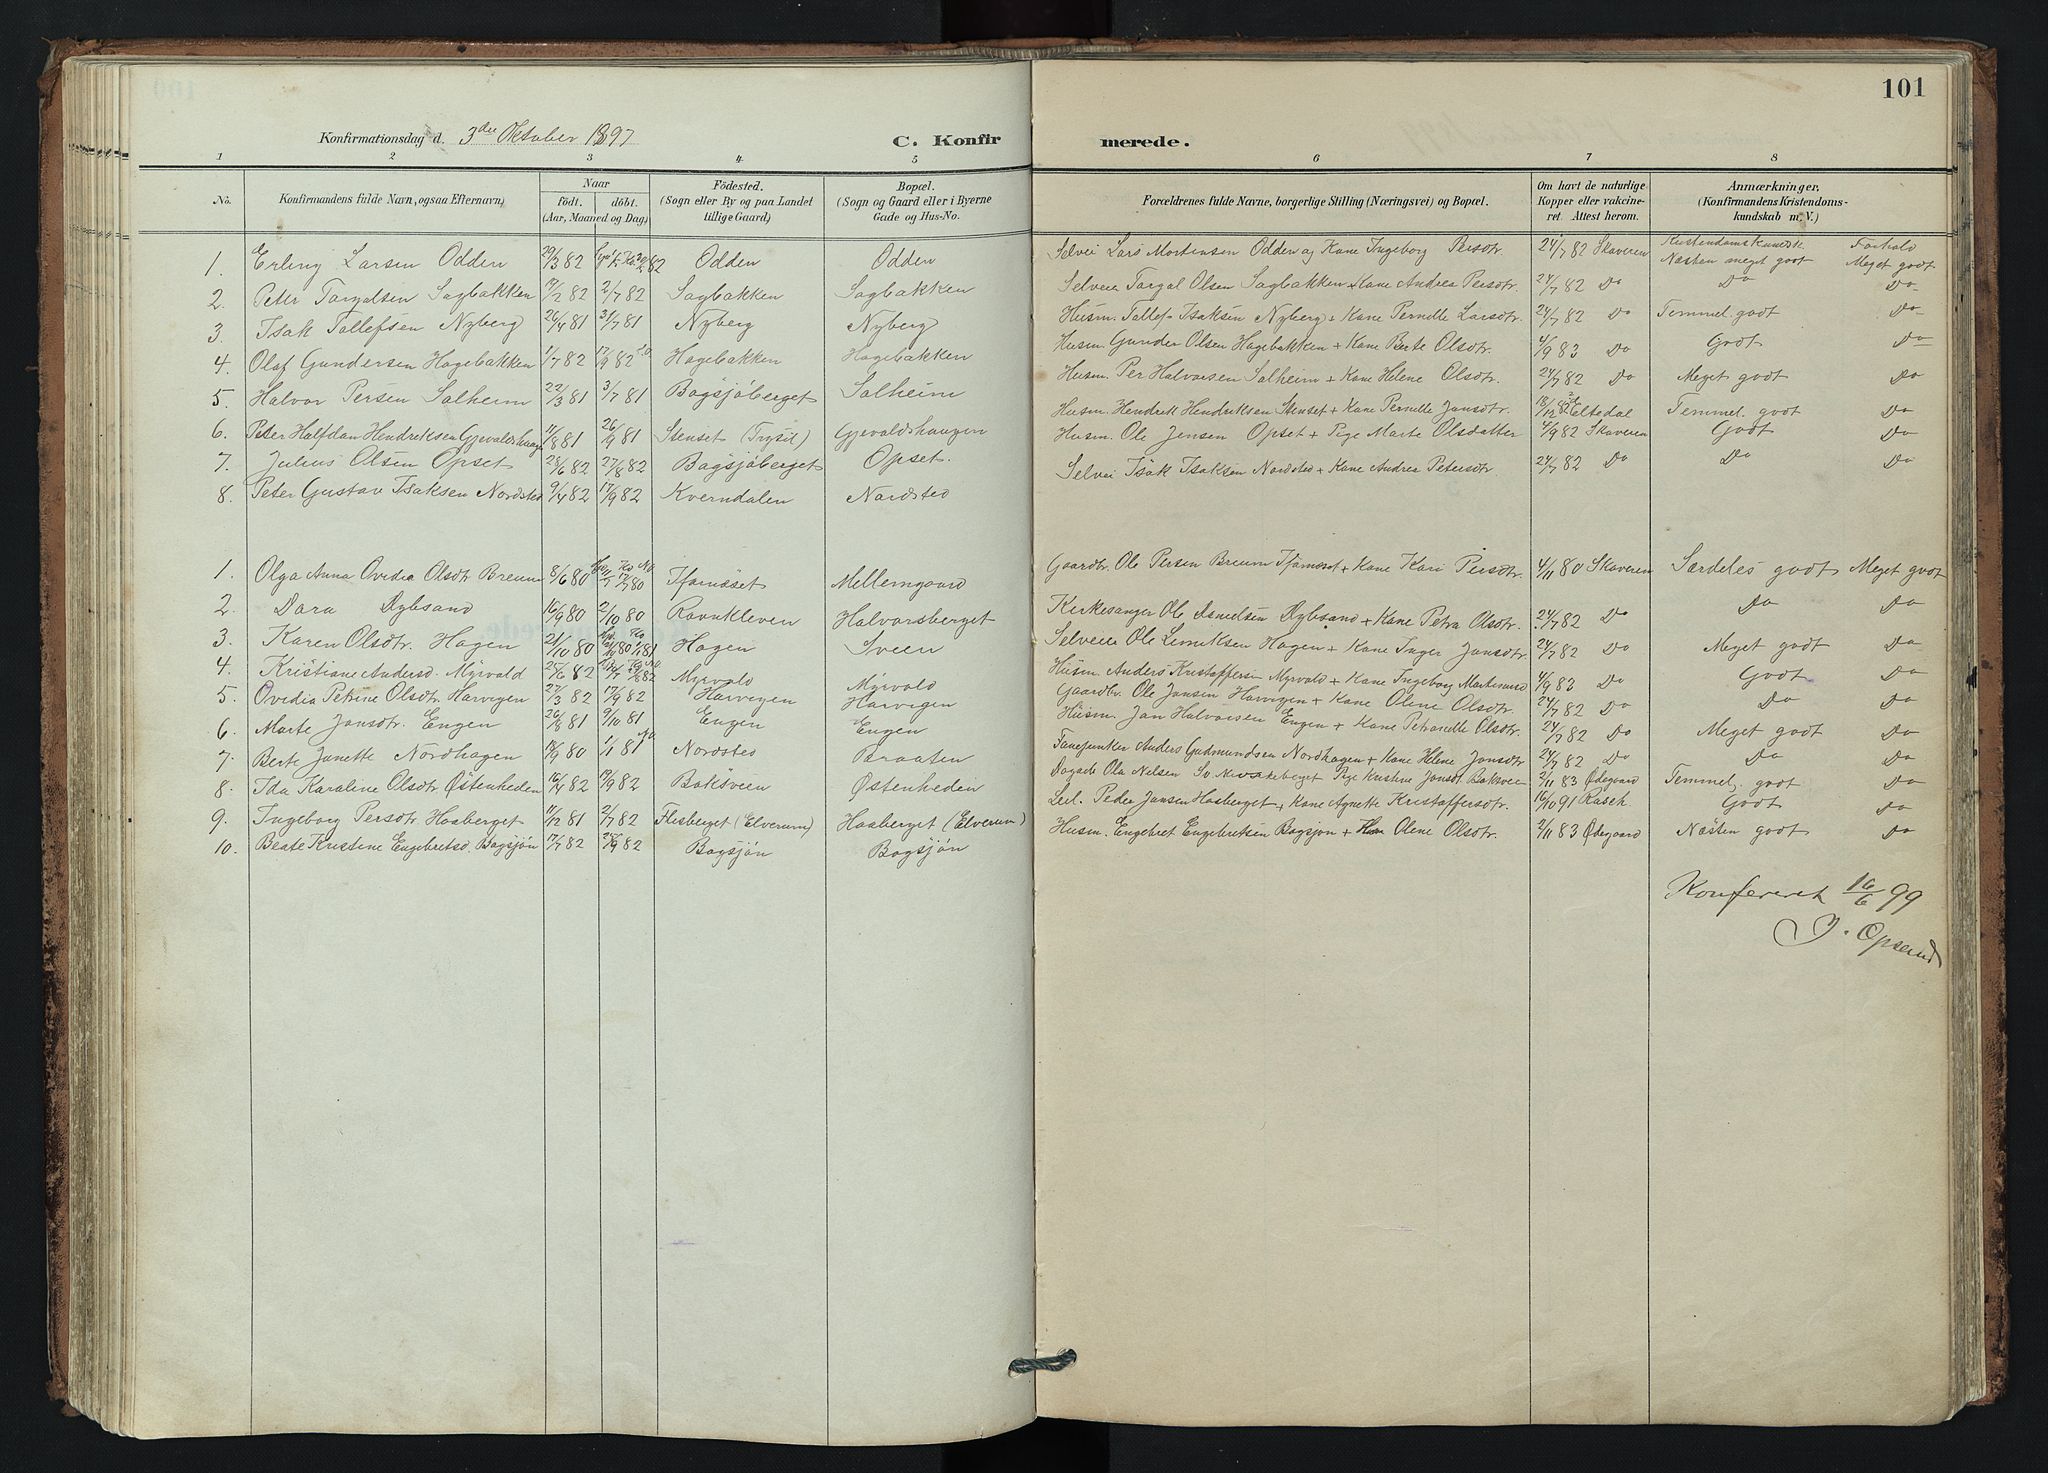 101
Konfirmationsdag d. 3die Oktober 1897 C. Konfirmerede.
1 2 3 4 5 6 7 8
No. Konfirmandens fulde Navn, ogsaa Efternavn. Naar født. døbt. (Aar, Maaned og Dag) Fødested. (Sogn eller By og paa Landet tillige Gaard) Bopæl. (Sogn og Gaard eller i Byerne Gade og Hus-No. Forældrenes fulde Navne, borgerlige Stilling (Næringsvei) og Bopæl. Om havt de naturlige Kopper eller vakcineret. Attest herom. Anmærkninger. (Konfirmandens Kristendomskundskab m. V.)
Kristendomskundsk Forhold
1. Erling Larsen Odden 29/3 82 Odden Odden Selvei Lars Mortensen Odden og Kone Ingeborg Persdtr. 24/7 82 Skaveren Næsten meget godt Meget godt
2. Peter Torgalsen Sagbakken 17/2 82 2/7 82 Sagbakken Sagbakken Selveier Torgal Olsen Sagbakken + Kone Andrea Persdtr. 24/7 82 Do Do Do
3. Isak Tollefsen Nyberg 26/4 81 31/7 81 Nyberg Nyberg Husm. Tollef Isaksen Nyberg + Kone Pernelle Larsdtr. 24/7 82 Do Temmel. godt Do
4. Olaf Gundersen Hagebakken 1/7 82 17/9 82 Hagebakken Hagebakken Husm. Gunder Olsen Hagebakken + Kone Berte Olsdtr. 4/9 83 Do Godt Do
5. Halvor Persen Solheim 22/3 81 3/7 81 Bogsjöberget Solheim Husm. Per Halvorsen Solheim + Kone Helene Olsdtr. 24/7 82 Do Meget godt Do
6. Peter Halfdan Hendriksen Gjevaldshaugen 11/8 81 26/9 81 Stenset (Trysil) Gjevaldshaugen Husm. Hendrik Hendriksen Stenset + Kone Pernelle Jonsdtr. 18/12 Temmel. godt Do
7. Julius Olsen Opset 28/6 82 27/8 82 Bogsjöberget Opset. Husm. Ole Jensen Opset + Pige Marte Olsdatter 4/9 82 Skaveren Godt Do
8. Peter Gustav Isaksen Nordsted 9/4 82 17/9 82 Kverndalen Nordsted Selvei Isak Isaksen Nordsted + Kone Andrea Petersdtr. 24/7 82 Do Do Do
1. Olga Anna Ovidia Olsdtr Breum 8/6 80 Mellemgaard Gaardbr. Ole Persen Breum + Kone Kari Persdtr. 4/11 80 Skaveren Særdeles godt Meget godt
2. Dora Rybsand 16/9 80 2/10 80 Ravnkleven Halvorsberget Kirkesanger Ole Rybsand + Kone Petra Olsdtr. 24/7 82 Do Do Do
3. Karen Olsdtr. Hagen 21/10 80 Hagen Sveen Selveier Ole Hagen + Kone Inger Jonsdtr. 24/7 82 Do Meget godt Do
4. Kristiane Andersd. Myrvold 25/6 82 Myrvold Myrvold Husm. Anders Kristoffersen Myrvold + Kone Ingeborg 4/9 83 Do Godt Do
5. Ovidia Petrine Olsdtr. Harvegen 27/3 82 17/9 82 Harvegen Harvegen Gaardbr. Ole Jonsen Harvegen + Kone Olene Olsdtr. 24/7 82 Do Do Do
6. Marte Jonsdtr. Engen 26/8 81 9/10 81 Engen Engen Husm. Jon Halvorsen Engen + Kone Petronelle Olsdtr. 24/7 82 Do Meget godt Do
7. Berte Janette Nordhagen 18/9 80 1/1 81 Nordsted Braaten Fanejunker Anders Gudmundsen Nordhagen + Kone Helene Jonsdtr 24/7 82 Do Do Do
8. Ida Karoline Olsdtr. Østenheden 16/4 82 17/9 82 Baksveen Østenheden Ola Nelsen Pige Kristine Jonsdt. 2/11 83 Ødegaard Temmel. godt Do
9. Ingeborg Persdtr Haaberget 11/12 81 2/7 82 Flisberget (Elverum) Haaberget (Elverum) Leil. Peder Jonsen Haaberget + Kone Agnette Kristoffersdtr. 16/10 91 Rasch. Godt Do
10. Beate Kristine Engebretsd. Bogsjön 17/7 82 24/9 82 Bogsjön Bogsjön Husm. Engebret Engebretsen Bogsjön + Kone Olene Olsdtr. 2/11 83 Ødegaard Næsten godt Do
Konfereret 16/6 99
J. Opsand